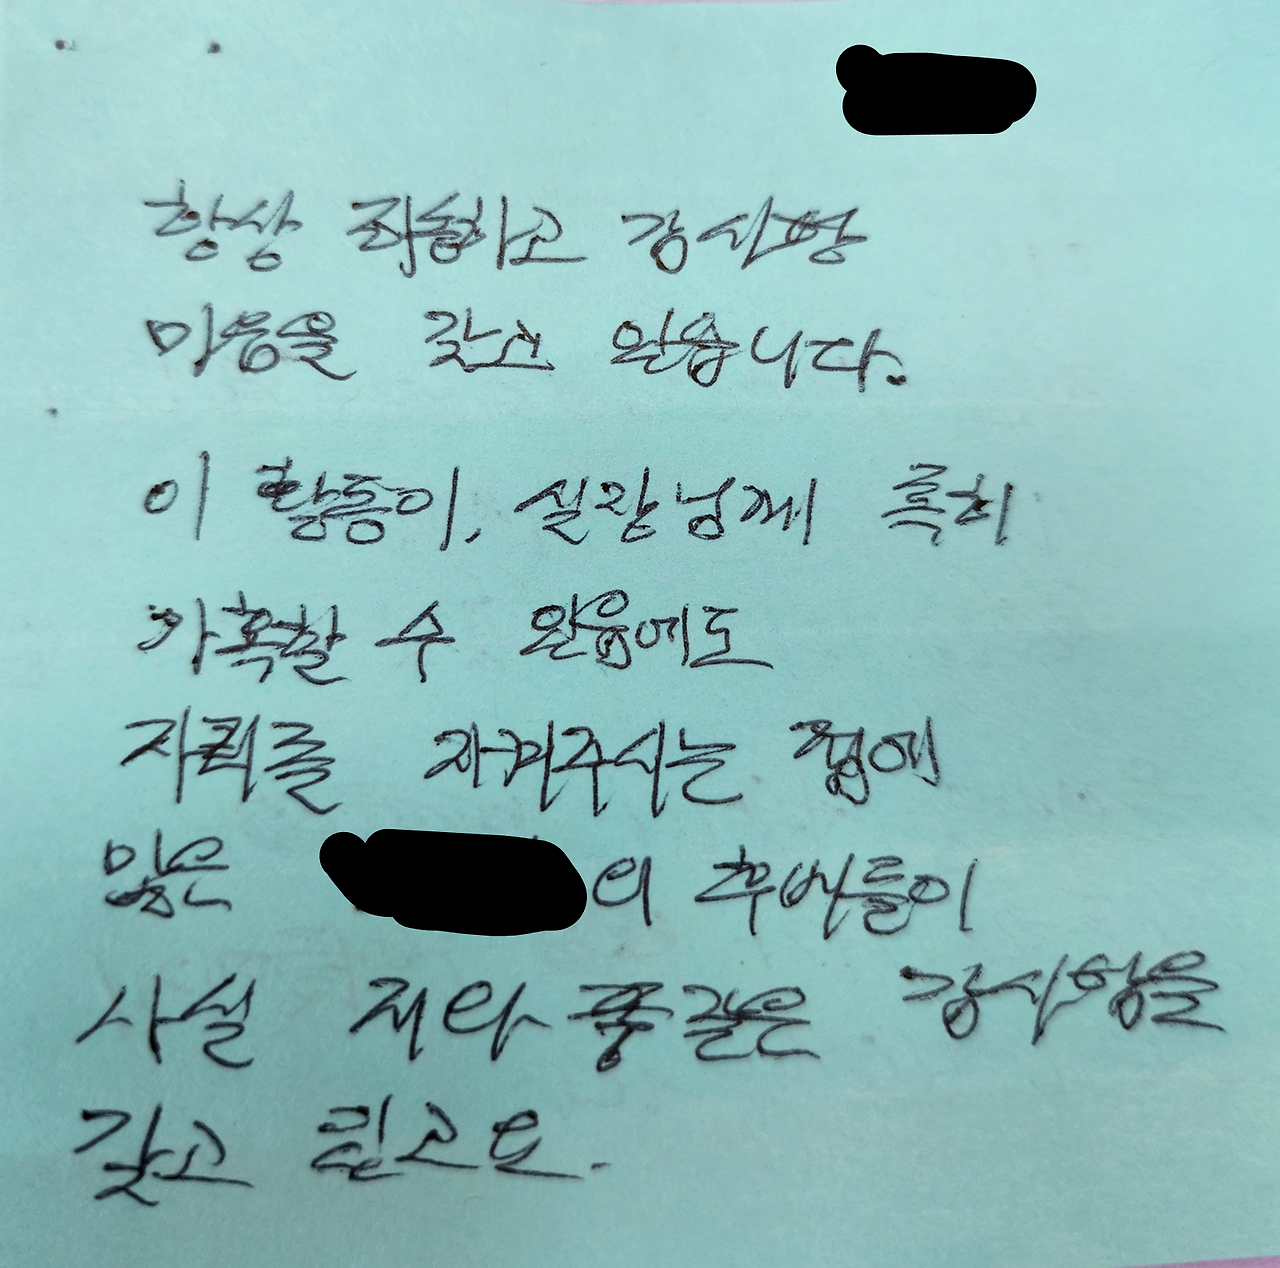 항상 죄송하고 감사한
마음을 갖고 있습니다.
이 활동이, 실장님께 혹시
가혹할 수 있음에도
자리를 지켜주시는 점에
많은 의 후배들이
사실 저와 똑같은 감사함을
갖고